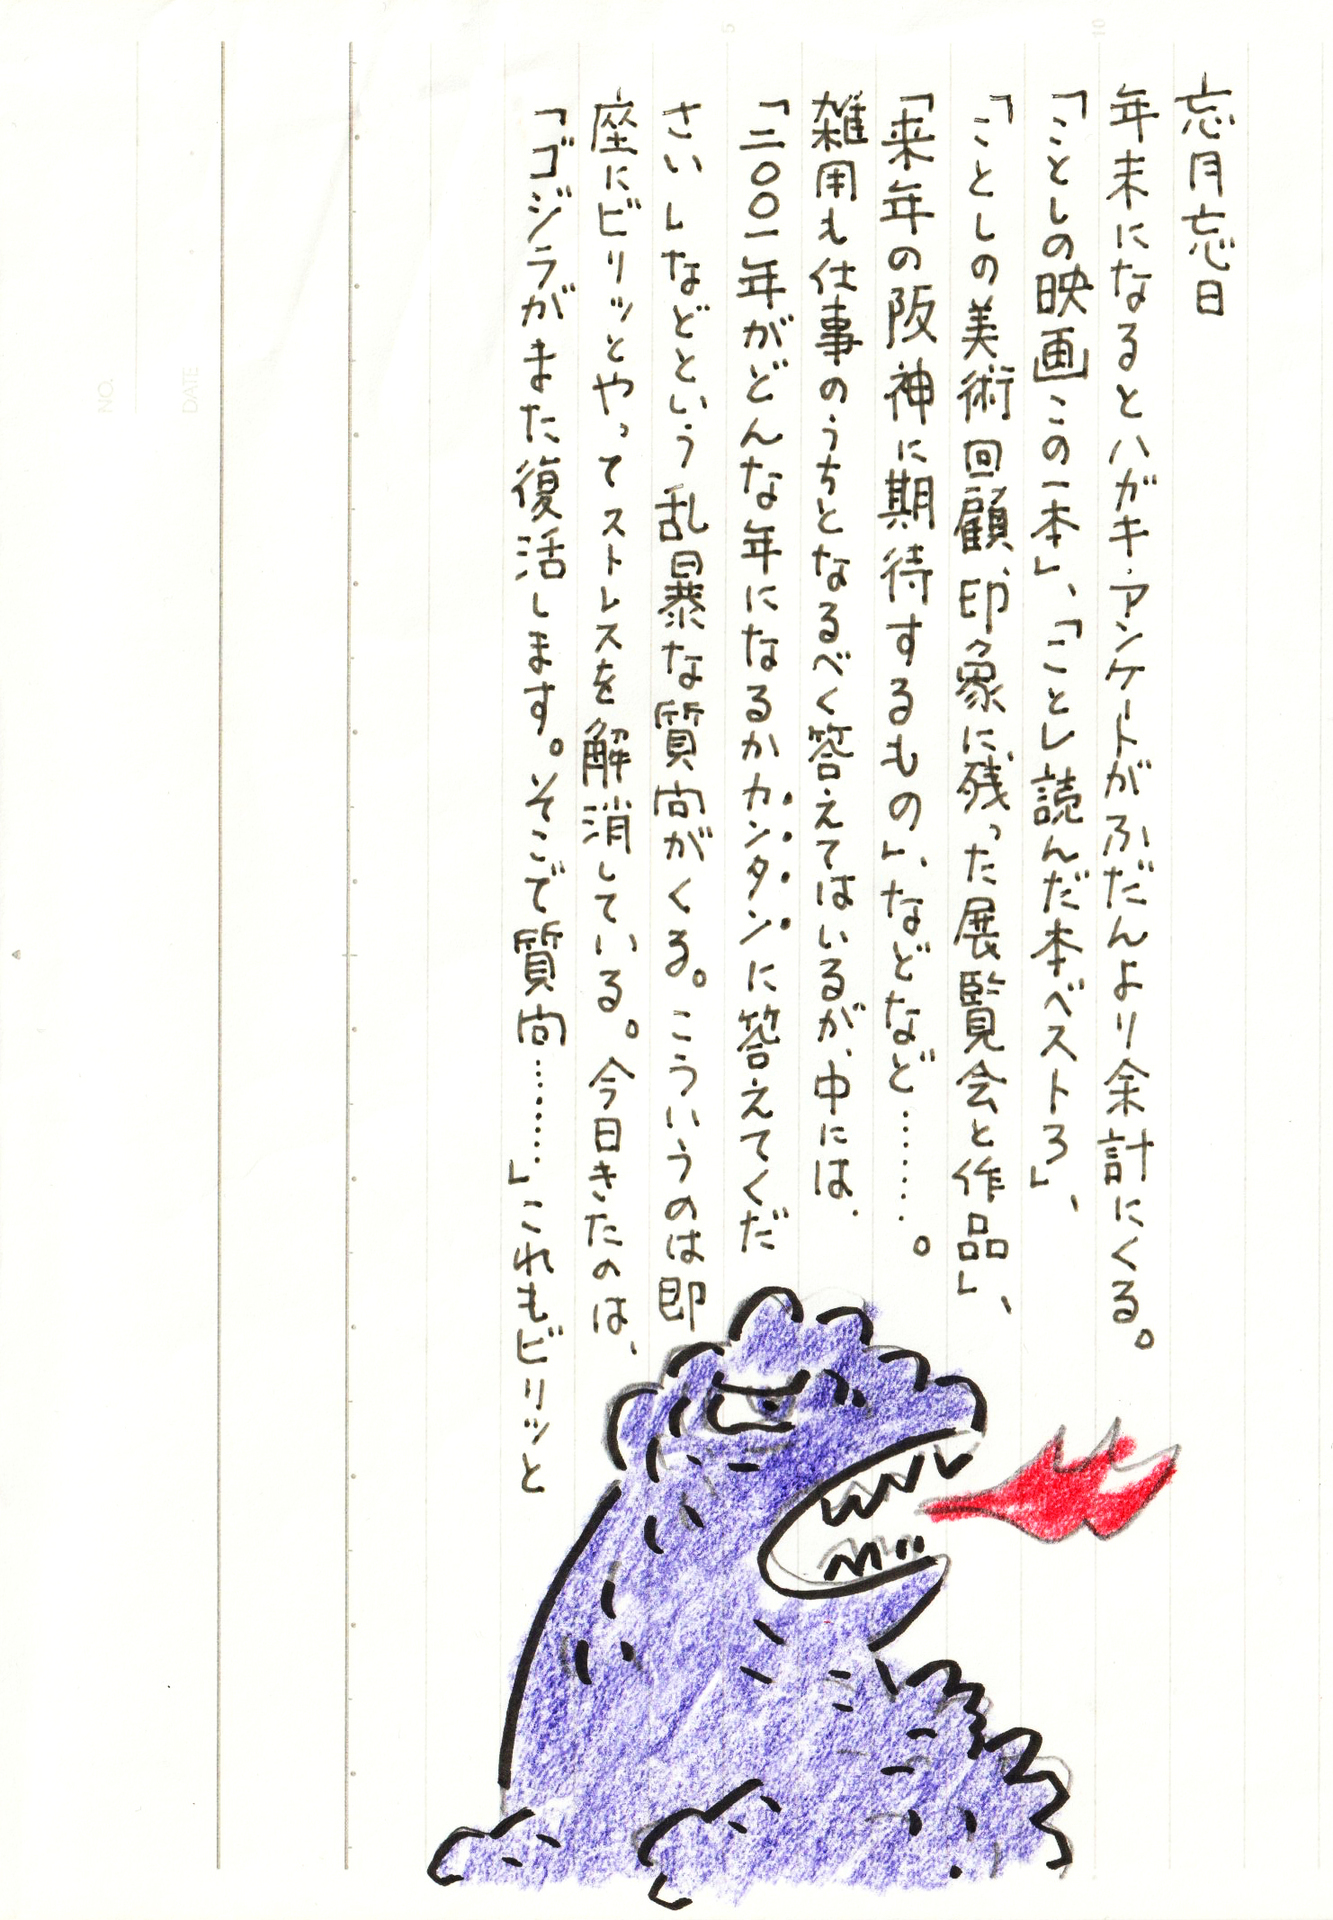 忘月忘日
年末になるとハガキ・アンケートがふだんより余計にくる。
「ことしの映画この一本」、「ことし読んだ本ベスト3」、
「ことしの美術回顧、印象に残った展覧会と作品」、
「来年の阪神に期待するもの」、などなど………。
雑用も仕事のうちとなるべく答えてはいるが、中には、
「二〇〇一年がどんな年になるかカンタンに答えてくだ
さい」などという乱暴な質问がくる。こういうのは即
座にビリッとやってストレスを解消している。今日きたのは、
「ゴジラがまた復活します。そこで質问………」これもビリッと
NO.
DATE
5
10